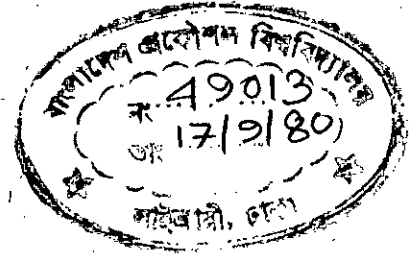 বাংলাদেশ প্রকৌশল বিশ্ববিদ্যালয়
নং 49013
তাং 17/9/80
লাইব্রেরী, ঢাকা